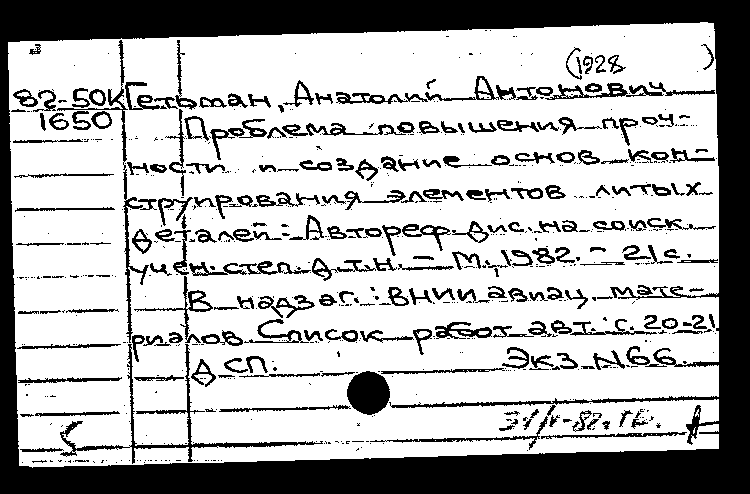 (1928 )
82-50К Гетьман, Анатолий Антонович.
1650 Проблема повышения проч-
ности и создание основ кон-
струирования элементов литых
деталей: Автореф. дис. на соиск.
учен. степ. д.т.н. - М., 1982. - 21 с.
В надзаг.: ВНИИ авиац. мате-
риалов. Список работ авт.: с. 20-21.
ДСП. Экз. №66.